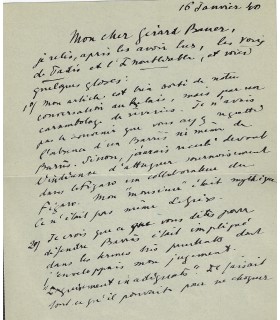 16 Janvier 40
Mon cher Gérard Bauer,
je relis, après les avoir lus, les
de Tadis et l'Inoubliable, (et voici
quelques gloses:
1°) Mon article est très sorti de notre
conversation au, mais par un
carambolage de rêveries. Je n'avais
pas le souvenir que vous ayez regretté
l'absence d'un Barrès ni même de
Barrès. Sinon, j'aurais reculé devant
l'indécence d'attaquer sournoisement
dans le Figaro un collaborateur du
Figaro. Mon "monsieur" était mythique
Ce n'était pas même
2°) Je crois que ce que vous dites pour
défendre Barrès était impliqué
dans les termes très prudents dont
j'enveloppais mon jugement.
" De faisait
tout ce qu'il pouvait pour se choquer